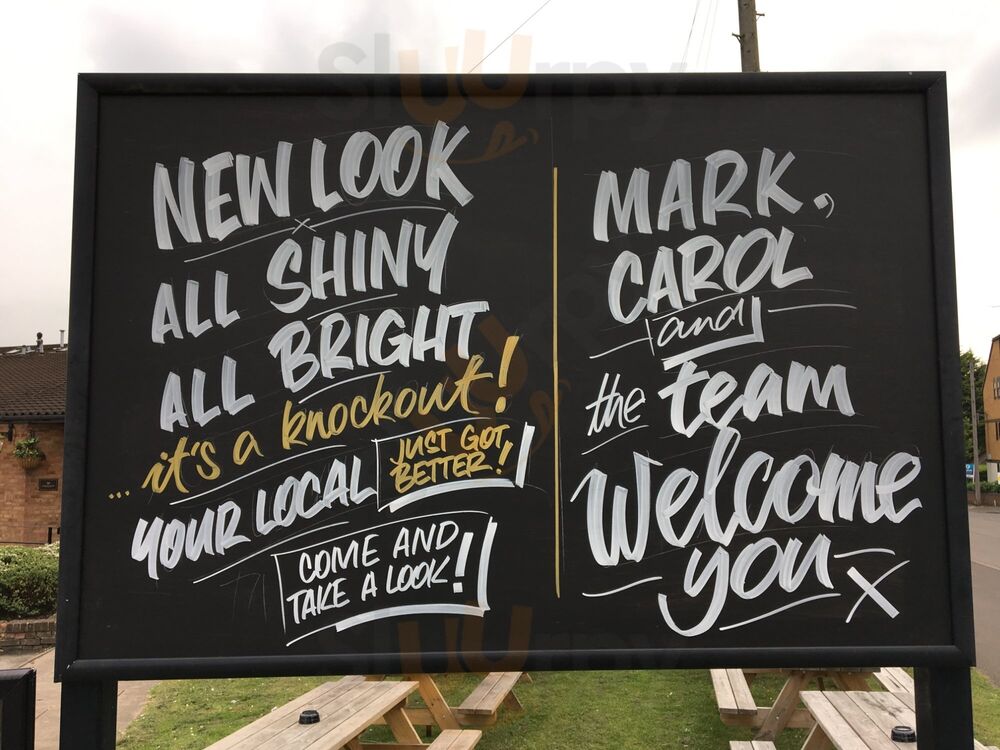 Sluurpy
NEW LOOK
ALL SHINY
ALL BRIGHT
... it's a knockout!
YOUR LOCAL JUST GOT
BETTER!
COME AND
TAKE A LOOK!
MARK,
CAROL
and
the team
Welcome
you x
Sluurpy